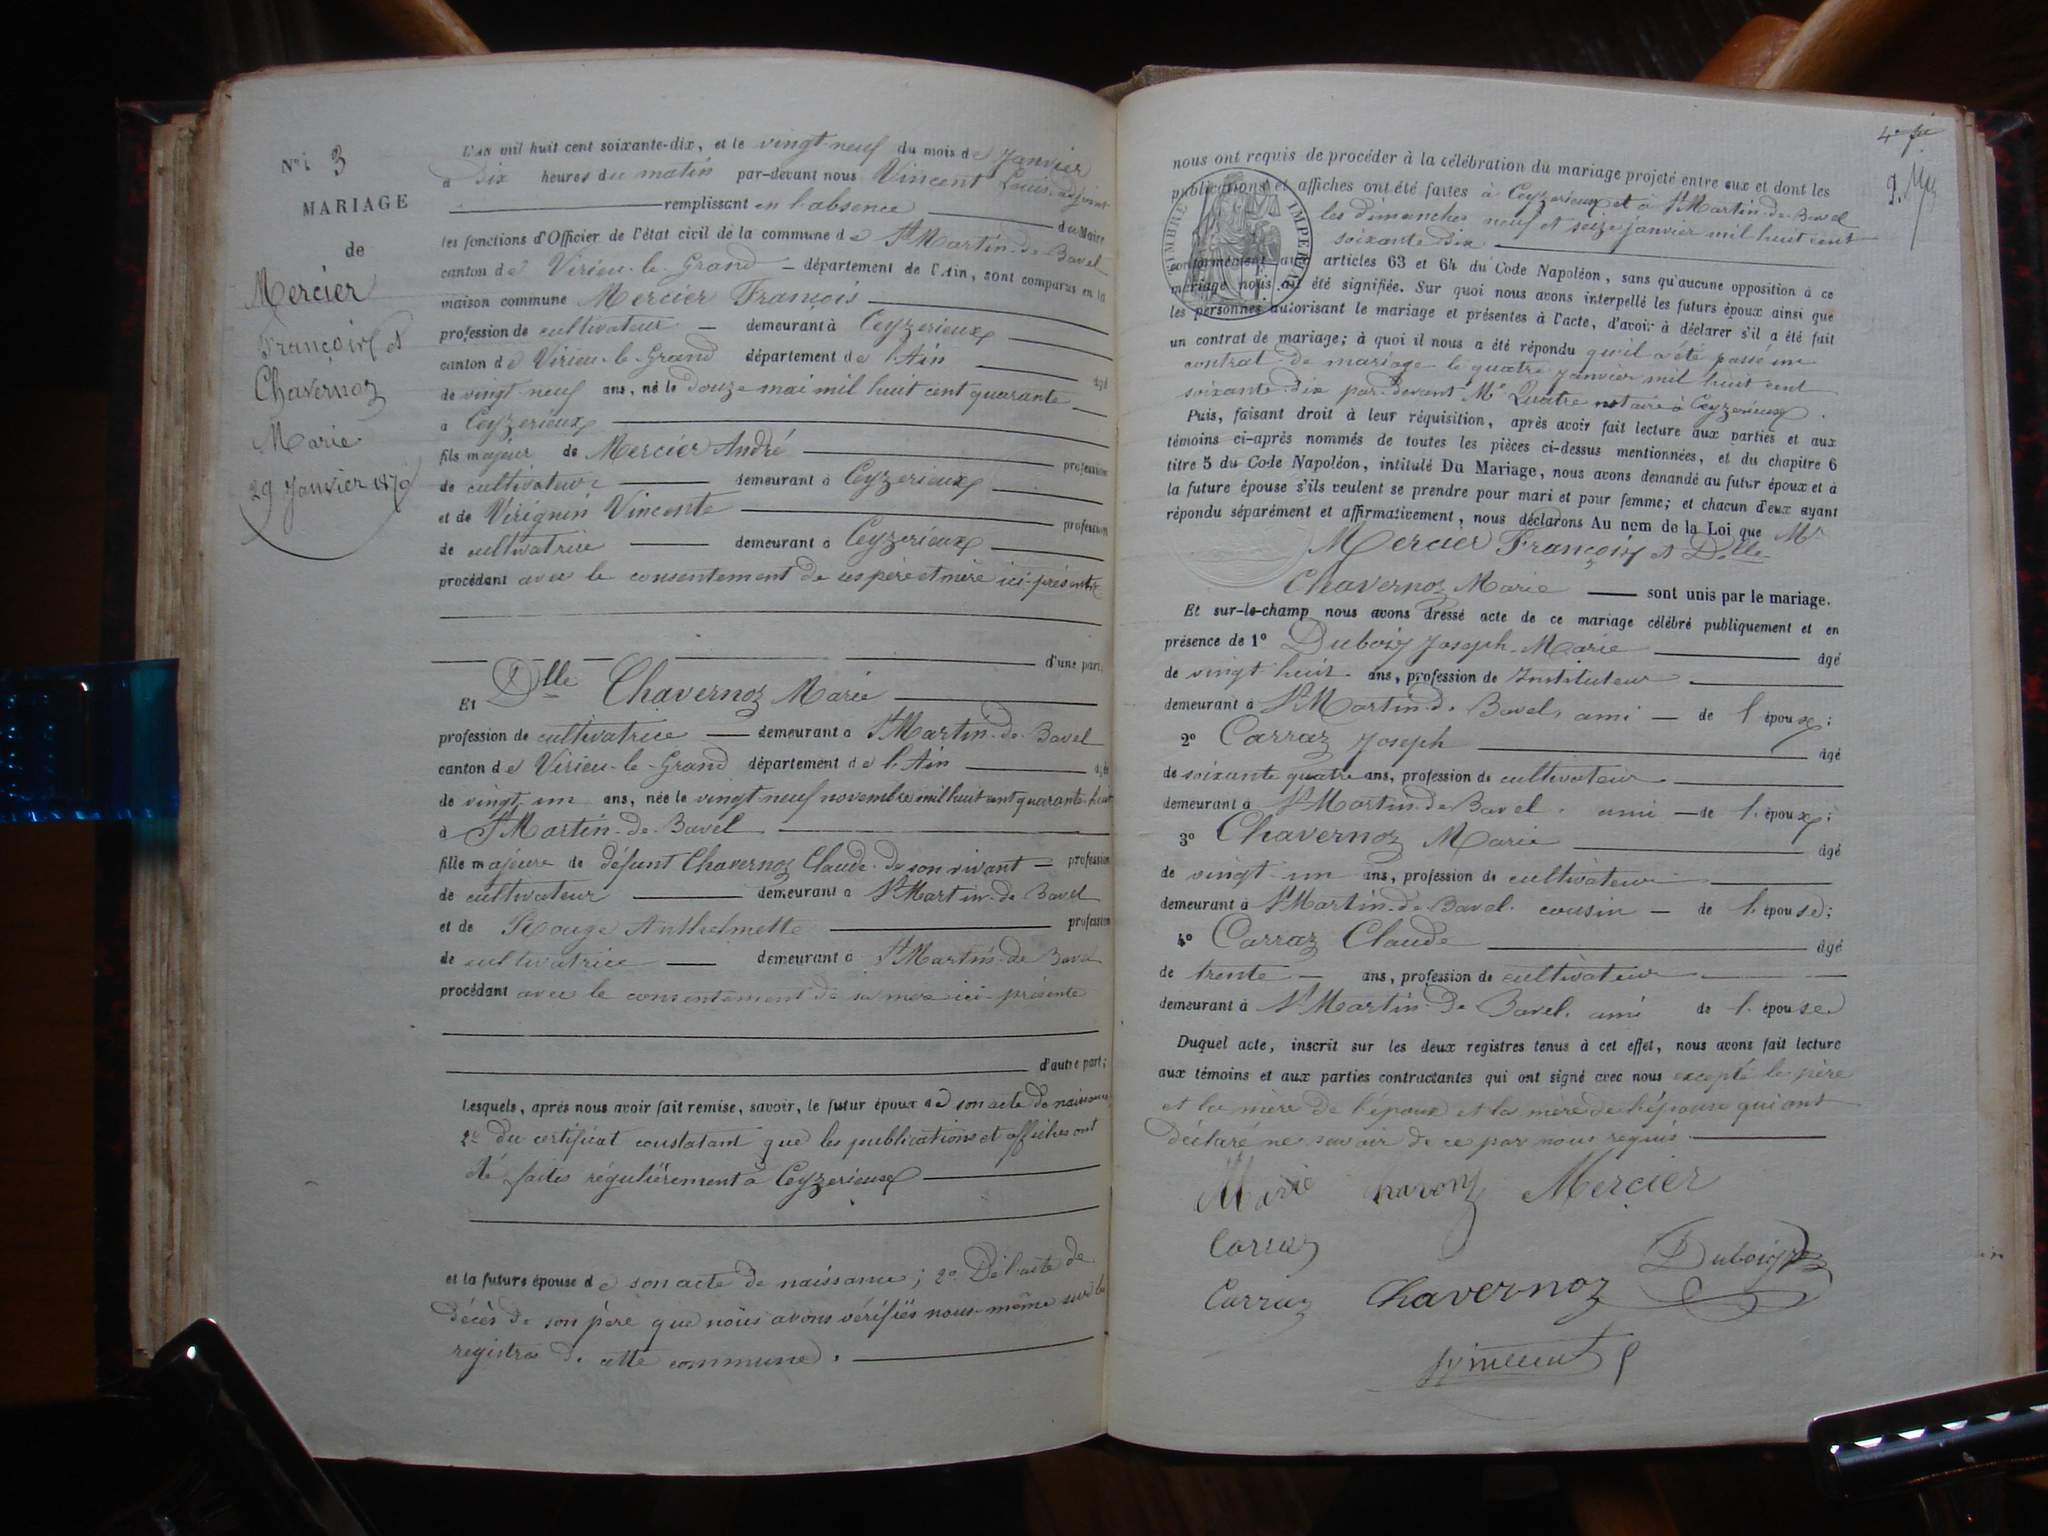 N° 3
MARIAGE
de
Mercier
François et
Chavernoz
Marie
29 Janvier 1870
L'AN mil huit cent soixante-dix, et le vingt-neuf du mois de Janvier
à dix heures du matin par-devant nous Vincent Louis, adjoint
remplissant en l'absence du Maire
les fonctions d'Officier de l'état civil de la commune de St Martin-de-Bavel
canton de Virieu-le-Grand département de l'Ain, sont comparus en la
maison commune Mercier François
profession de cultivateur demeurant à Ceyzerieux
canton de Virieu-le-Grand département de l'Ain âgé
de vingt neuf ans, né le douze mai mil huit cent quarante
à Ceyzerieux
fils majeur de Mercier André profession
de cultivateur demeurant à Ceyzerieux
et de Virignin Vincente profession
de cultivatrice demeurant à Ceyzerieux
procédant avec le consentement de ses père et mère ici-présents
d'une part.
Et Dlle Chavernoz Marie
profession de cultivatrice demeurant à St Martin-de-Bavel
canton de Virieu-le-Grand département de l'Ain âgée
de vingt-un ans, née le vingt-neuf novembre mil huit cent quarante-huit
à St Martin-de-Bavel
fille majeure de défunt Chavernoz Claude de son vivant profession
de cultivateur demeurant à St Martin-de-Bavel
et de Rouge Anthelmette profession
de cultivatrice demeurant à St Martin-de-Bavel
procédant avec le consentement de sa mère ici-présente
d'autre part;
Lesquels, après nous avoir fait remise, savoir, le futur époux de son acte de naissance,
2° du certificat constatant que les publications et affiches ont
été faites régulièrement à Ceyzerieux
et la future épouse de son acte de naissance; 2° De l'acte de
décès de son père que nous avons vérifiés nous-même sur les
registres de cette commune.
nous ont requis de procéder à la célébration du mariage projeté entre eux et dont les
publications et affiches ont été faites à Ceyzerieux et à St Martin-de-Bavel
les dimanches neuf et seize janvier mil huit cent
soixante dix
TIMBRE IMPERIAL
conformément aux articles 63 et 64 du Code Napoléon, sans qu'aucune opposition à ce
mariage nous ait été signifiée. Sur quoi nous avons interpellé les futurs époux ainsi que
les personnes autorisant le mariage et présentes à l'acte, d'avoir à déclarer s'il a été fait
un contrat de mariage; à quoi il nous a été répondu qu'il a été passé un
contrat de mariage le quatre janvier mil huit cent
soixante-dix par-devant Me Quatre notaire à Ceyzerieux.
Puis, faisant droit à leur réquisition, après avoir fait lecture aux parties et aux
témoins ci-après nommés de toutes les pièces ci-dessus mentionnées, et du chapitre 6
titre 5 du Code Napoléon, intitulé Du Mariage, nous avons demandé au futur époux et à
la future épouse s'ils veulent se prendre pour mari et pour femme; et chacun d'eux ayant
répondu séparément et affirmativement, nous déclarons Au nom de la Loi que Mr
Mercier François et Delle
Chavernoz Marie sont unis par le mariage.
Et sur-le-champ nous avons dressé acte de ce mariage célébré publiquement et en
présence de 1° Dubois Joseph-Marie âgé
de vingt-huit ans, profession de Instituteur
demeurant à St Martin-de-Bavel, ami de l'époux;
2° Carraz Joseph âgé
de soixante quatre ans, profession de cultivateur
demeurant à St Martin-de-Bavel. ami de l'époux;
3° Chavernoz Marie âgé
de vingt-un ans, profession de cultivateur
demeurant à St Martin-de-Bavel. cousin de l'épouse;
4° Carraz Claude âgé
de trente ans, profession de cultivateur
demeurant à St Martin-de-Bavel, ami de l'épouse
Duquel acte, inscrit sur les deux registres tenus à cet effet, nous avons fait lecture
aux témoins et aux parties contractantes qui ont signé avec nous excepté le père
et la mère de l'époux et la mère de l'épouse qui ont
déclaré ne savoir de ce par nous requis.
Marie Mercier
Carraz
Dubois
Carraz Chavernoz
Vincent